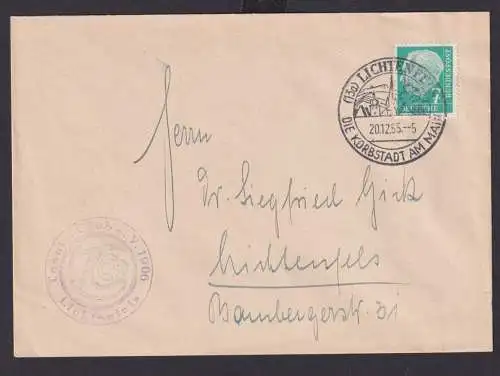 (13a) LICHTENFELS
7
DEUTSCHE BUNDESPOST
20.12.55.--5
DIE KORBSTADT AM MAIN
Herrn
Dr. Siegfried Gick
Lichtenfels
Bambergerstr. 31
e.V. 1906
Lichtenfels